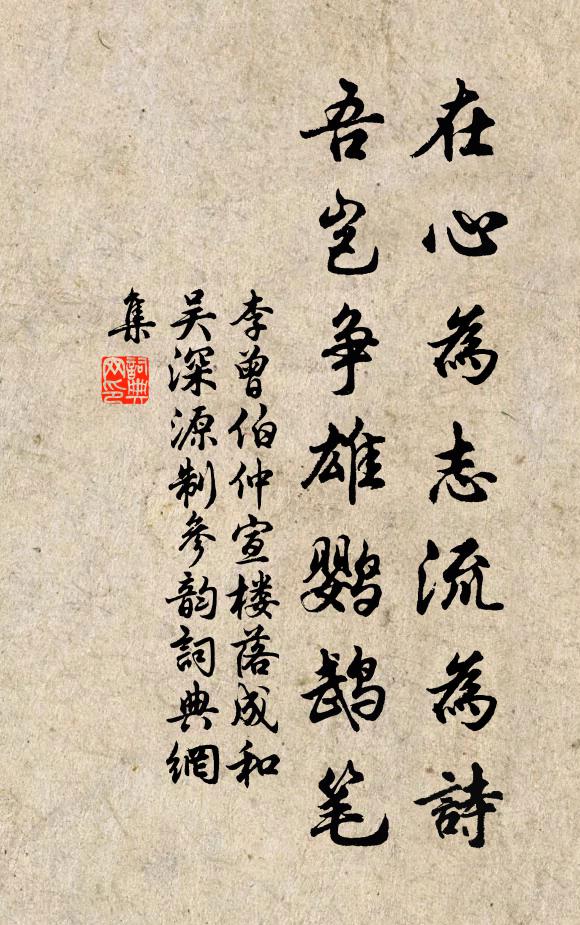 在心為志流為詩
吾岂争雄鹦鹉笔
李曾伯仲宣楼落成和
吴深源制参韵詞典網
集
詞典
网印